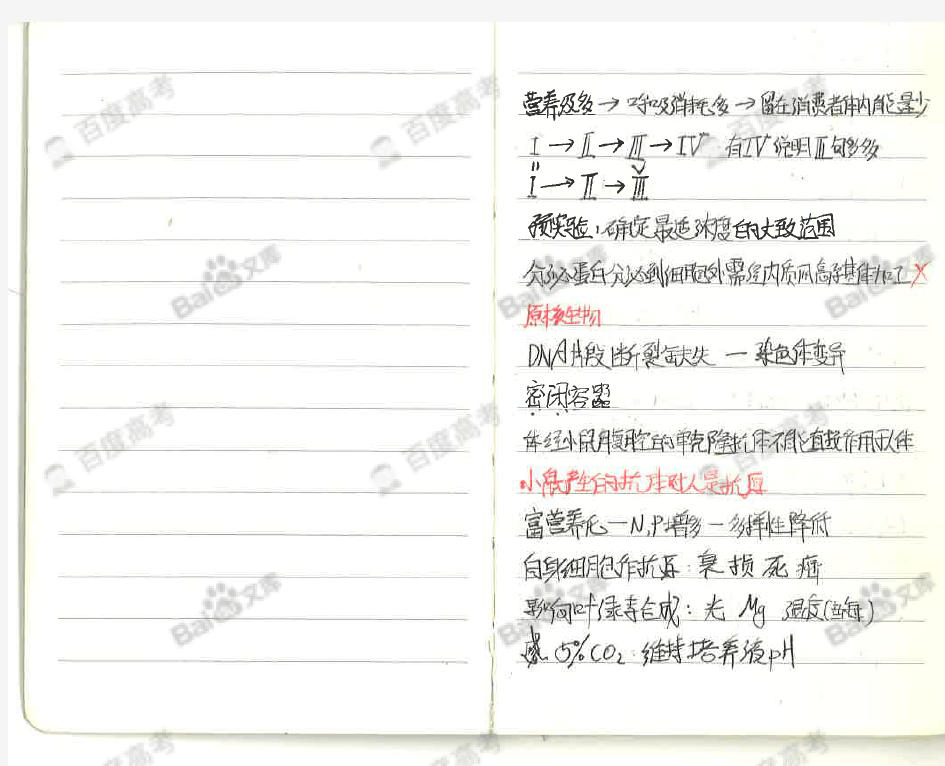 营养级多→呼吸消耗多→留在消费者体内能量少
I→II→III→IV 有IV说明III旬多多
I→II→III
预实验:确定最适浓度的大致范围
分泌蛋白分泌到细胞外需经内质网高尔基体加工×
原核生物
DNA片段断裂缺失—染色体变异
密闭容器
体经小鼠腹腔的单克隆抗体不能直接作用于人体
小鼠产生的抗体对人是抗原
富营养化—N,P增多—多样性降低
自身细胞作抗原:衰 损 死 癌
影响叶绿素合成:光 Mg 温度(酶)
5%CO₂:维持培养液pH
百度高考
Baidu文库